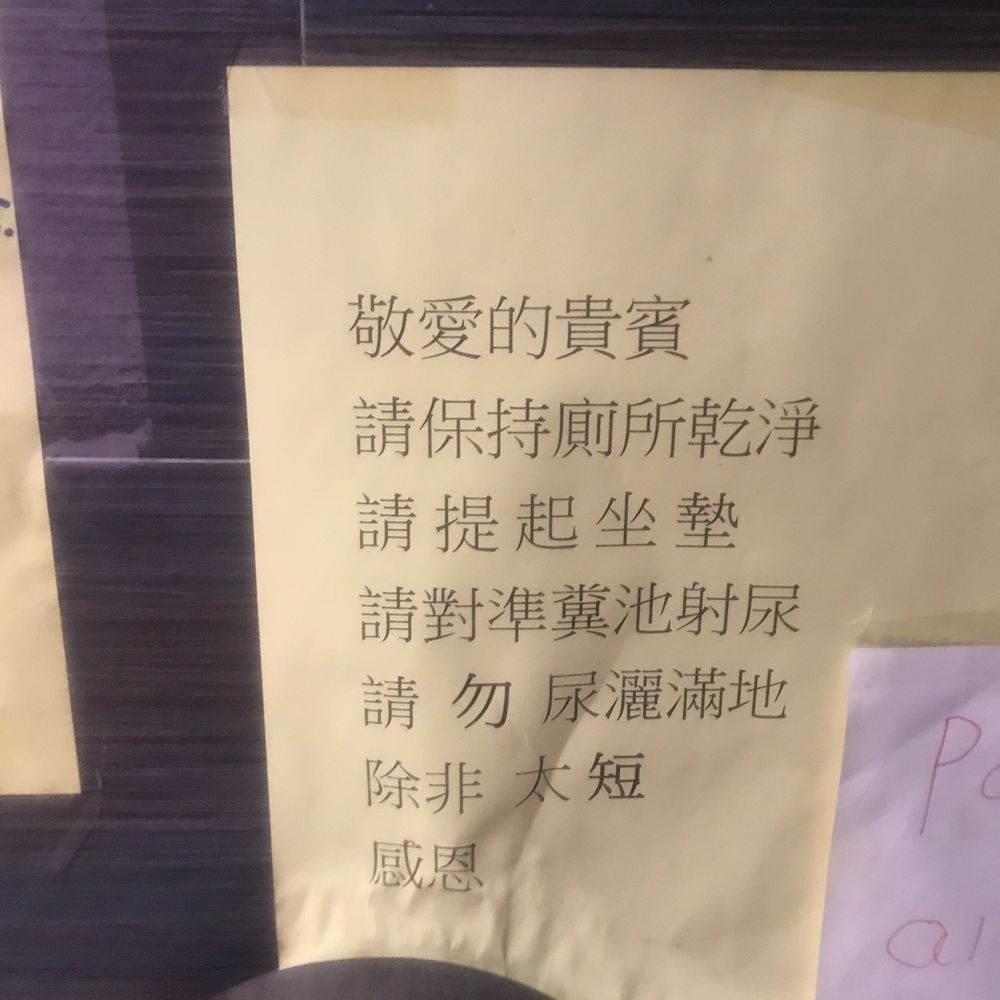 敬愛的貴賓
請保持廁所乾淨
請提起坐墊
請對準糞池射尿
請勿尿灑滿地
除非太短
感恩